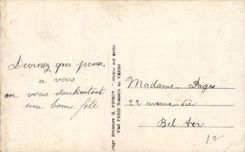 Devinez qui pense
à vous
en vous souhaitant
une bonne fête
Madame Pages
22 avenue du
Bel Air